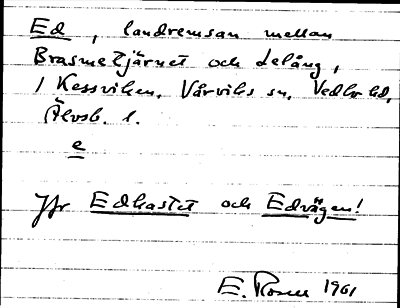 Ed, landremsan mellan
Brasmetjärnet och Lelång,
i Kessviken, Vårviks sn, Vedbo hd,
Älvsb. l.
e
Jfr Edhastet och Edvägen!
E. Rosell 1961